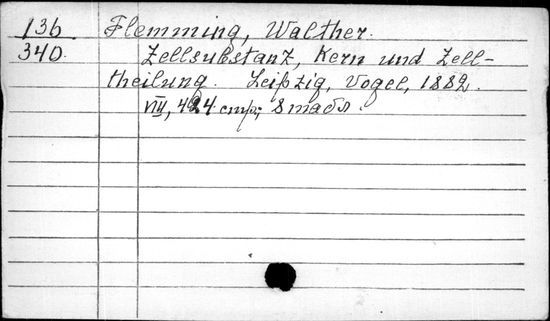 136 Flemming, Walther.
340. Zellsubstanz, Kern und Zell-
theilung. Leipzig, Vogel, 1882.
VIII, 424 стр; 8 табл.